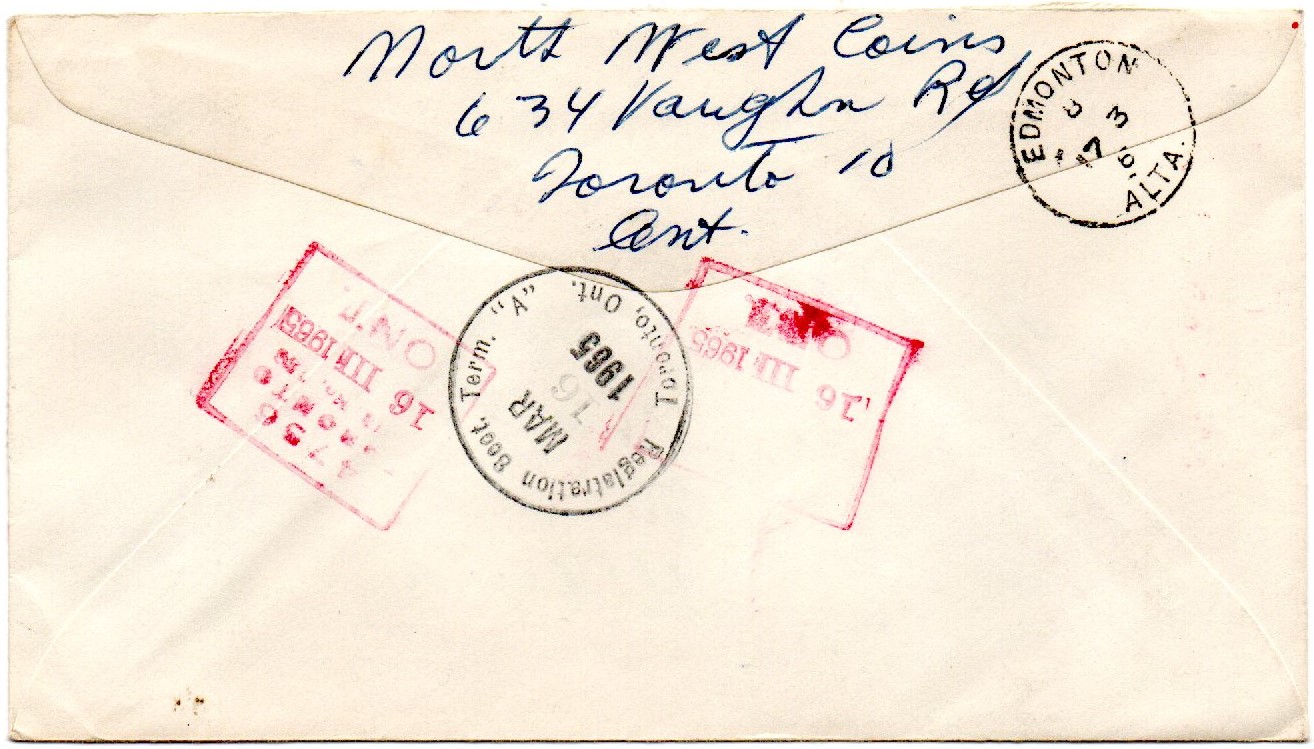 North West Coins
634 Vaughn Rd
Toronto 10
Ont.
EDMONTON
17 3
ALTA.
ONT.
16 III 1965
TORONTO
4756
Registration Sect. Term. "A"
Toronto, Ont.
MAR
16
1965
ONT.
16 III 1965